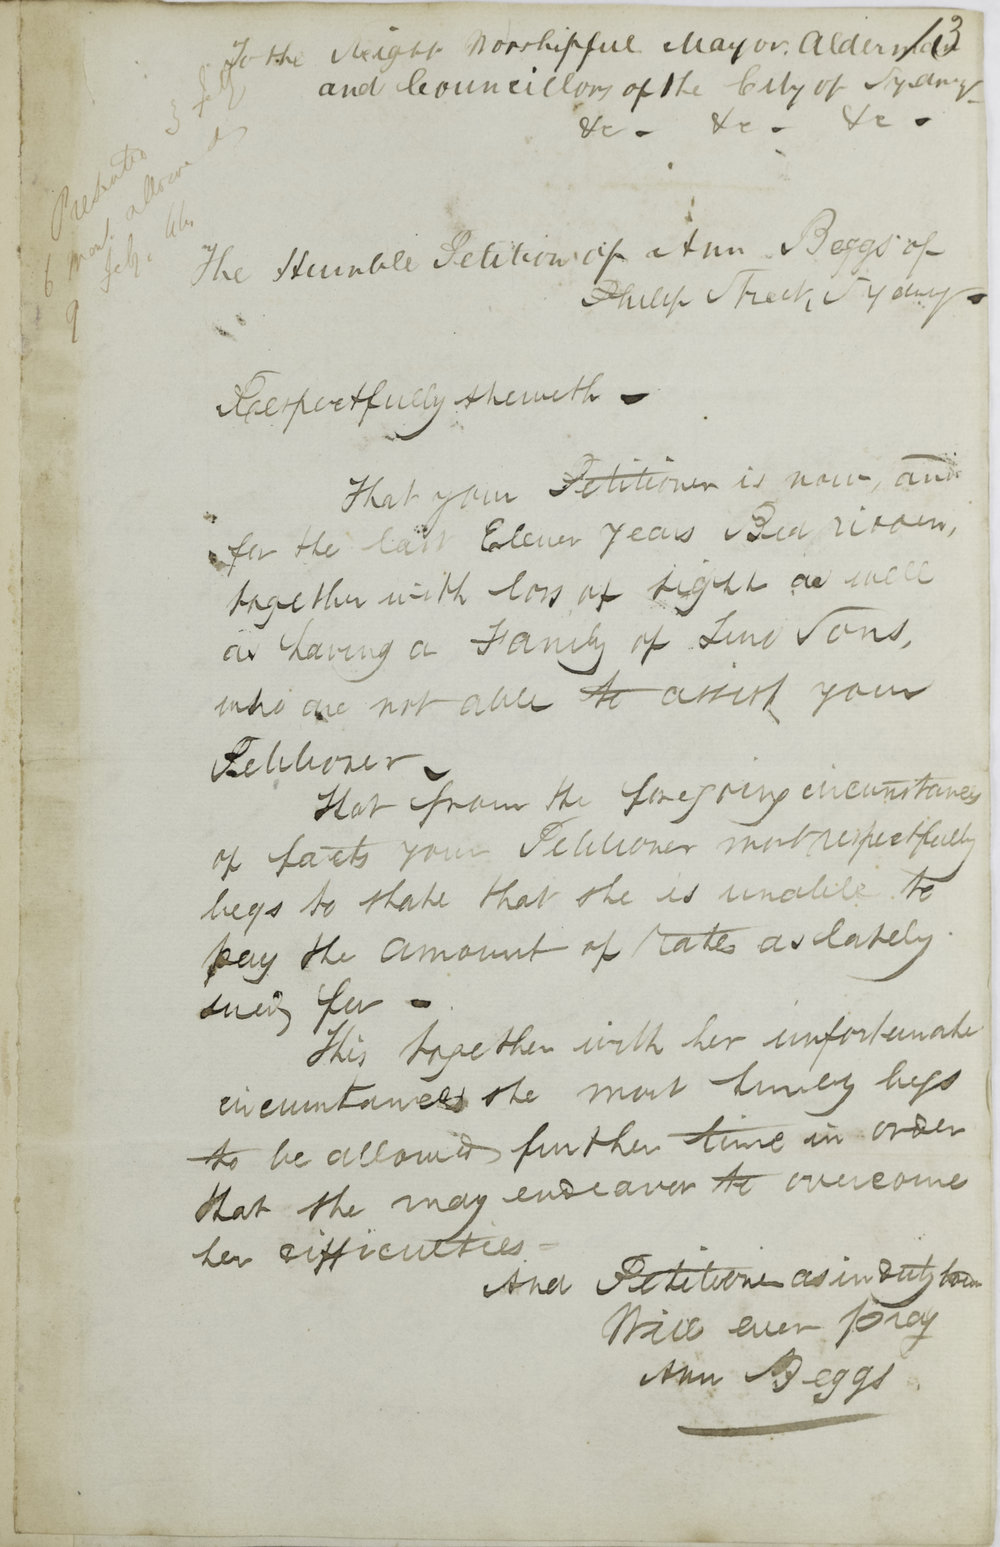 13
To the Right Worshipful Mayor. Alderman
and Councillors of the City of Sydney
&c - &c - &c -
5 Feby
Presented
6 mos. allowed
9 Feby.
The Humble Petition of Ann Beggs of
Philip Street, Sydney -
Respectfully sheweth -
That your Petitioner is now, and
for the last Eleven Years Bed ridden,
together with loss of sight as well
as having a Family of Two Sons,
who are not able to assist your
Petitioner -
That from the foregoing circumstances
of facts your Petitioner most respectfully
begs to state that she is unable to
pay the amount of Rates as lately
sued for -
This together with her unfortunate
circumstances she most humbly begs
to be allowed further time in order
that she may endeavor to overcome
her difficulties -
And Petitioner as in duty bound
Will ever pray
Ann Beggs